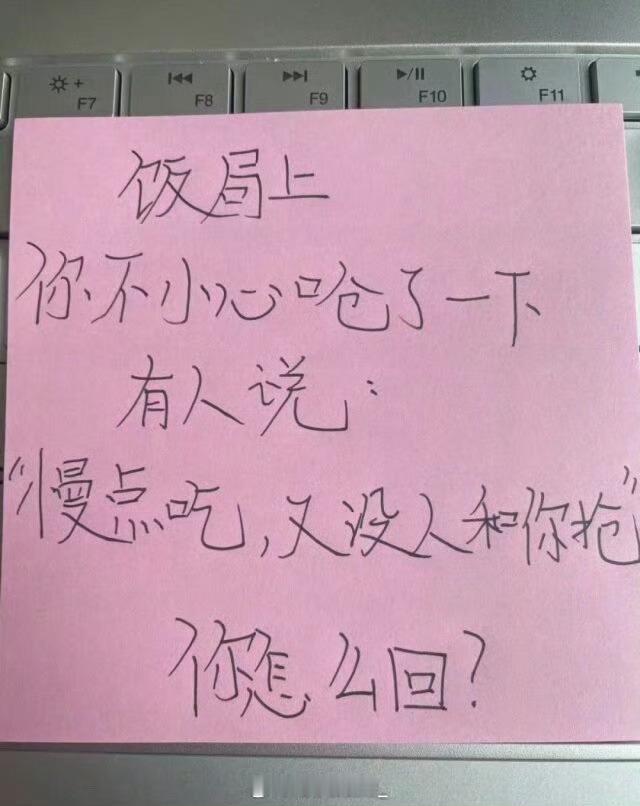 F7
F8
F9
F10
F11
饭局上
你不小心呛了一下
有人说:
"慢点吃,又没人和你抢"
你怎么回?